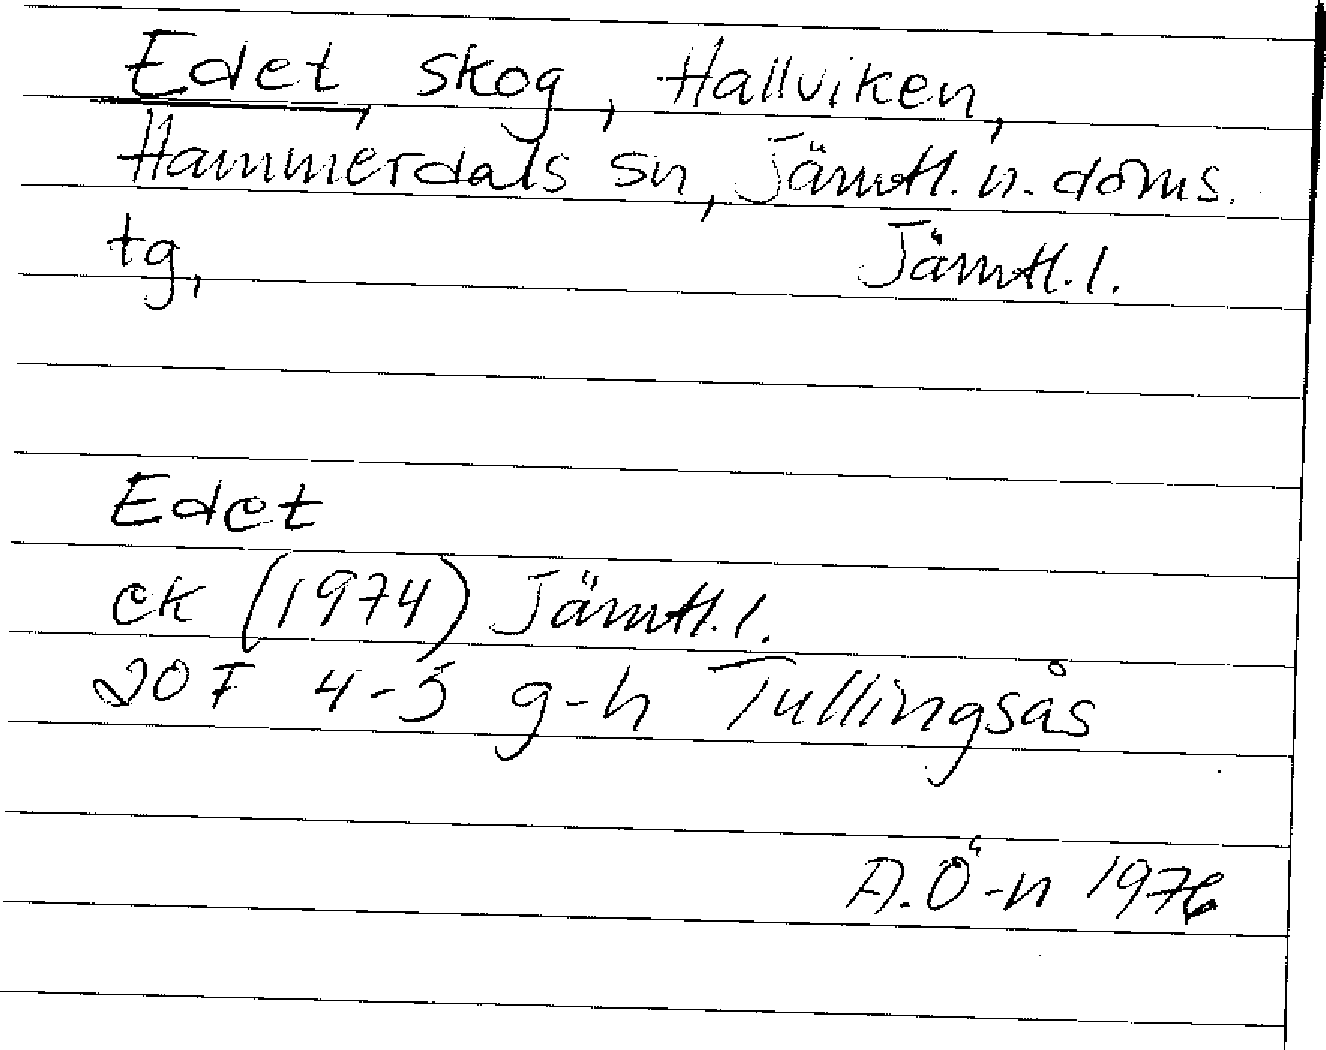 Edet, skog, Hallviken,
Hammerdals sn, Jämtl. n. doms.
tg, Jämtl. l.
Edet
ek (1974) Jämtl. l.
20 F 4-5 g-h Tullingsås
A. Ö-n 1976